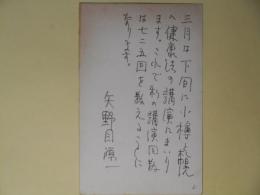 三月は下旬に小樽、札幌
へ健康法の講演にまいり
ます。これで私の講演回数
は七二五回を数えることに
なります。
矢野目源一